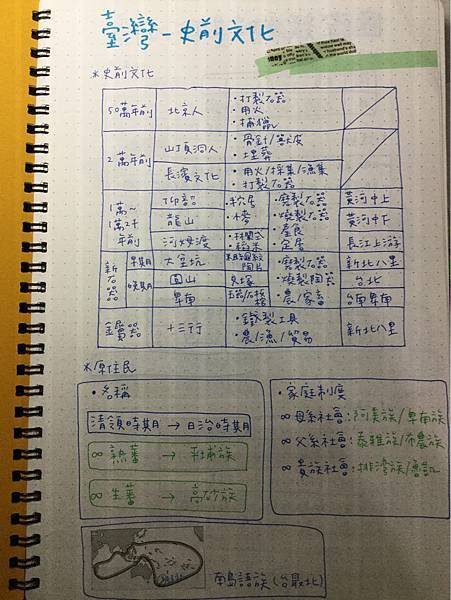 臺灣-史前文化
*史前文化
50萬年前 北京人 ・打製石器
・用火
・捕獵
2萬年前 山頂洞人 ・骨針/獸皮
・埋葬
長濱文化 ・用火/採集/漁集
・打製石器
1萬~
1萬2千
年前
仰韶 黃河中上
龍山 黃河中下
河姆渡 長江上游
・磨製石器
・燒製石器
・定居
新石器 早期 大坌坑 ・磨製石器 新北八里
晚期 圓山 貝塚 ・燒製陶器 台北
卑南 ・農/家畜 台東卑南
鐵器 十三行 ・鐵製工具
・農/漁/貿易 新北八里
*原住民
・名稱
清領時期 → 日治時期
∞ 熟蕃 → 平埔族
∞ 生蕃 → 高砂族
・家庭制度
∞ 母系社會:阿美族/卑南族
∞ 父系社會:泰雅族/布農族
∞ 貴族社會:排灣族/魯凱
南島語族(台最北)